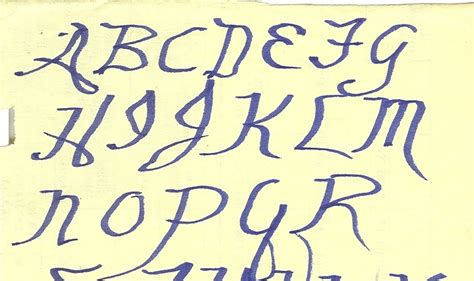 A B C D E F G
H I J K L M
n O P Q R